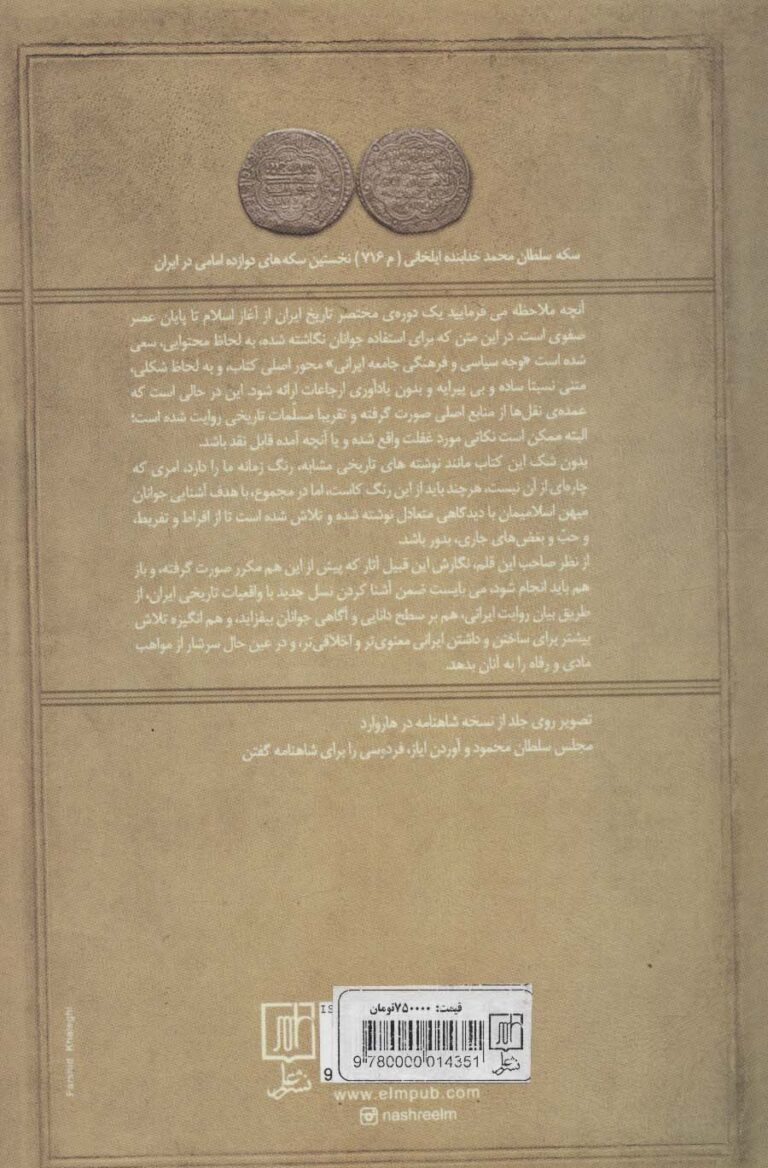 سکه سلطان محمد خدابنده ایلخانی (م ۷۱۶) نخستین سکه‌های دوازده امامی در ایران
آنچه ملاحظه می فرمایید یک دوره‌ی مختصر تاریخ ایران از آغاز اسلام تا پایان عصر
صفوی است. در این متن که برای استفاده جوانان نگاشته شده، به لحاظ محتوایی، سعی
شده است «وجه سیاسی و فرهنگی جامعه ایرانی» محور اصلی کتاب، و به لحاظ شکلی،
متنی نسبتا ساده و بی پیرایه و بدون یادآوری ارجاعات ارائه شود. این در حالی است که
عمده‌ی نقل‌ها از منابع اصلی صورت گرفته و تقریبا مسلّمات تاریخی روایت شده است؛
البته ممکن است نکاتی مورد غفلت واقع شده و یا آنچه آمده قابل نقد باشد.
بدون شک این کتاب مانند نوشته های تاریخی مشابه، رنگ زمانه ما را دارد، امری که
چاره‌ای از آن نیست، هرچند باید از این رنگ کاست، اما در مجموع، با هدف آشنایی جوانان
میهن اسلامیمان با دیدگاهی متعادل نوشته شده و تلاش شده است تا از افراط و تفریط،
و حبّ و بغض‌های جاری، بدور باشد.
از نظر صاحب این قلم، نگارش این قبیل آثار که پیش از این هم مکرر صورت گرفته، و باز
هم باید انجام شود، می بایست ضمن آشنا کردن نسل جدید با واقعیات تاریخی ایران، از
طریق بیان روایت ایرانی، هم بر سطح دانایی و آگاهی جوانان بیفزاید، و هم انگیزه تلاش
بیشتر برای ساختن و داشتن ایرانی معنوی‌تر و اخلاقی‌تر، و در عین حال سرشار از مواهب
مادی و رفاه را به آنان بدهد.
تصویر روی جلد از نسخه شاهنامه در هاروارد
مجلس سلطان محمود و آوردن ایاز، فردوسی را برای شاهنامه گفتن
قیمت: ۷۵۰۰۰۰تومان
9 780000 014351
نشر علم
نشر علم
IS
9
www.elmpub.com
nashreelm